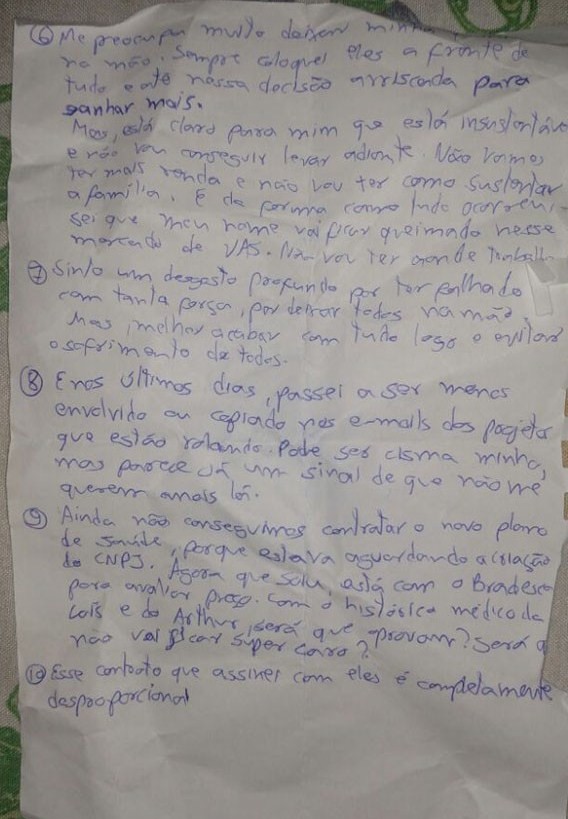 ⑥ Me preocupa muito deixar minha
na mão. Sempre coloquei eles a fronte de
tudo e até nossa decisão arriscada para
ganhar mais.
Mas, está claro para mim que está insustentáve
e não vou conseguir levar adiante. Não vamos
ter mais renda e não vou ter como sustentar
a família. E da forma como tudo ocorreu
sei que meu nome vai ficar queimado nesse
mercado de VAS. Não vou ter aonde trabalh
⑦ Sinto um desgosto profundo por ter falhado
com tanta força, por deixar todos na mão.
Mas, melhor acabar com tudo logo e evitar
o sofrimento de todos.
⑧ E nos últimos dias, passei a ser menos
envolvido ou copiado nos e-mails dos projetos
que estão rolando. Pode ser cisma minha,
mas parece já um sinal de que não me
querem mais lá.
⑨ Ainda não conseguimos contratar o novo plano
de saúde, porque estava aguardando a criação
do CNPJ. Agora que saiu, está com o Bradesco
para avaliar preço. Com o histórico médico da
Laís e do Arthur, será que aprovam? Será q
não vai ficar super caro?
⑩ Esse contrato que assinei com eles é completamente
desproporcional